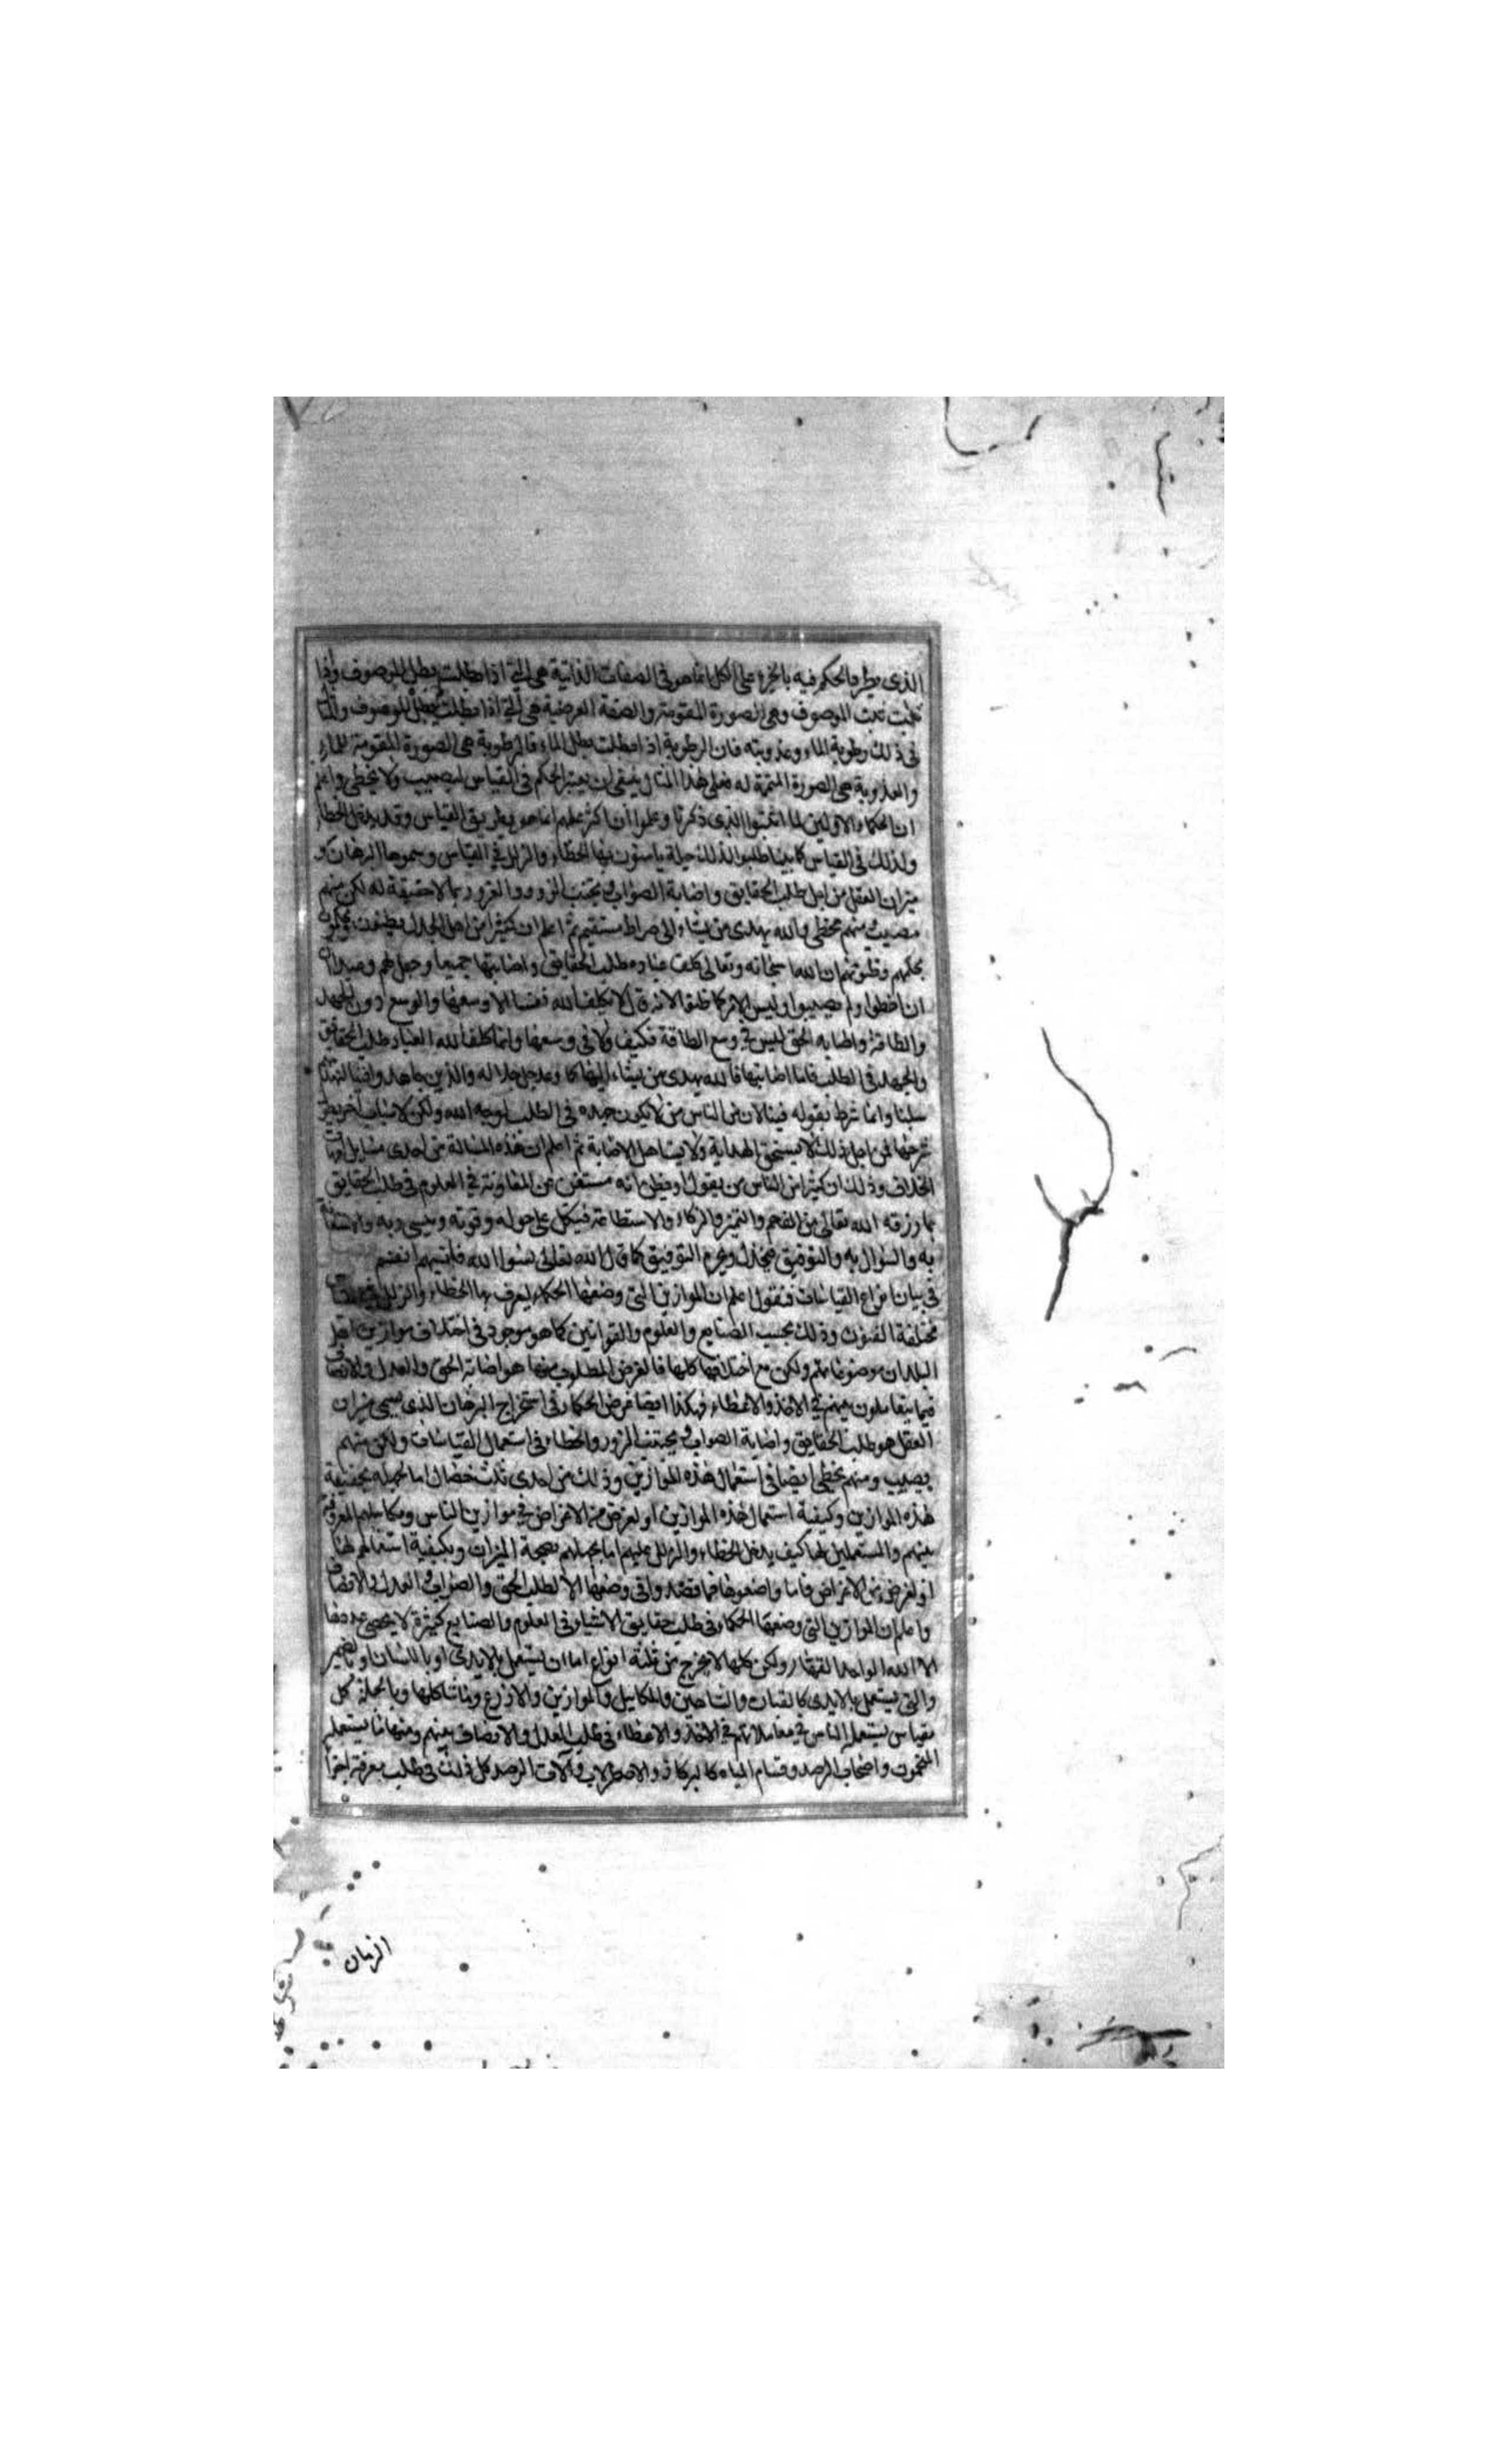 الذى يطرد الحكم فيه بالجزء على الكل انما هو فى الصفات الذاتية هى التى اذا بطلت بطل الموصوف واذا
ثبت الموصوف وهى الصورة المقومة والصفة العرضية هى التى اذا بطلت لم يبطل الموصوف
فى ذلك رطوبة الماء وعذوبته فان الرطوبة اذا بطلت بطل الماء فالرطوبة هى الصورة المقومة للماء
والعذوبة هى الصورة المتممة له فعلى هذا المثال ينبغى ان يعتبر الحكم فى القياس ليصيب ولا يخطى واعلم
ان الحكماء الاولين لما الذى ذكرنا وعلموا ان اكثر علمهم انما هو بطريق القياس وقد يدخل الخطاء
ولذلك فى القياس كما بينا طلبوا لذلك حيلة يامنون بها الخطاء والزلل فى القياس وسموها البرهان و
ميزان العقل من اجل طلب الحقايق واصابة الصواب وتجنب الزور والغرور بما لا حقيقة له لكن منهم
مصيب ومنهم مخطى والله يهدى من يشاء الى صراط مستقيم ثم اعلم ان كثيرا من اهل الجدل
بحكمهم وظنونهم ان الله سبحانه وتعالى كلف عباده طلب الحقايق واصابتها جميعا وجعل لهم
ان اخطوا ولم يصيبوا وليس الامر كما ظنوا لانه قال لا يكلف الله نفسا الا وسعها والوسع دون الجهد
والطاقة واصابه الحق ليس فى وسع الطاقة فكيف ولا فى وسعها وانما كلف الله العباد طلب الحقايق
والجهد فى الطلب فاما اصابتها فالله يهدى من يشاء اليها كما وعد جل جلاله والذين جاهدوا فينا لنهدينهم
سبلنا وانما شرط بقوله فينا لان من الناس من لا يكون جهده فى الطلب لوجه الله ولكن لاسباب اخر يطول
شرحها فمن اجل ذلك لا يستحق الهداية ولا يتاهل الاصابة ثم اعلم ان هذه المسالة من احدى مسايل
الخلاف وذلك ان كثيرا من الناس من يقول او يظن انه مستغن عن المعاونة فى العلوم فى طلب الحقايق
بما رزقه الله تعالى من الفهم والتميز والذكاء والاستطاعة فيتكل على حوله وقوته وينسى ربه والاستعانة
به والسؤال به والتوفيق فيخذل ويحرم التوفيق كما قال الله تعالى نسوا الله فانسيهم انفسهم
فى بيان انواع القياسات فنقول اعلم ان الموازين التى وضعها الحكماء ليعرف بها الخطاء والزلل
مختلفة الفنون وذلك بحسب الصنايع والعلوم والقوانين كما هو موجود فى اختلاف موازين اهل
البلدان موضوعاتهم ولكن مع اختلافها كلها فالغرض المطلوب منها هو اصابة الحق والعدل والانصاف
فيما يتعاملون بينهم فى الاخذ والاعطاء فهكذا ايضا غرض الحكماء فى استخراج البرهان الذى يسمى ميزان
العقل هو طلب الحقايق واصابة الصواب وتجنب الزور والخطاء فى استعمال القياسات ولكن منهم
يصيب ومنهم يخطى ايضا فى استعمال هذه الموازين وذلك من احدى ثلث خصال اما بجهله بحقيقة
هذه الموازين وكيفية استعمال هذه الموازين او لغرض من الاغراض فى موازين الناس ومكاييلهم المعرفة
بينهم والمستعملين لها كيف يدخل الخطاء والزلل عليهم اما بجهلهم بصحة الميزان وبكيفية استعمالهم لها
او لغرض من الاغراض فاما واضعوها فما قصدوا فى وضعها الا لطلب الحق والصواب والعدل والانصاف
واعلم ان الموازين التى وضعها الحكماء فى طلب حقايق الاشياء فى العلوم والصنايع كثيرة لا يحصى عددها
الا الله الواحد القهار ولكن كلها لا يخرج من ثلثة انواع اما ان يستعمل بالايدى او باللسان او بالضمير
والتى يستعمل بالايدى كالقبان والشاهين والمكاييل والموازين والاذرع وما شاكلها وبالجملة كل
مقياس يستعمله الناس فى معاملاتهم فى الاخذ والاعطاء فى طلب العدل والانصاف بينهم ومنها ما يستعمله
المنجمون واصحاب الرصد وقسام المياه كالبركار والاصطرلاب وآلات الرصد كل ذلك فى طلب معرفة اجزا
الزمان